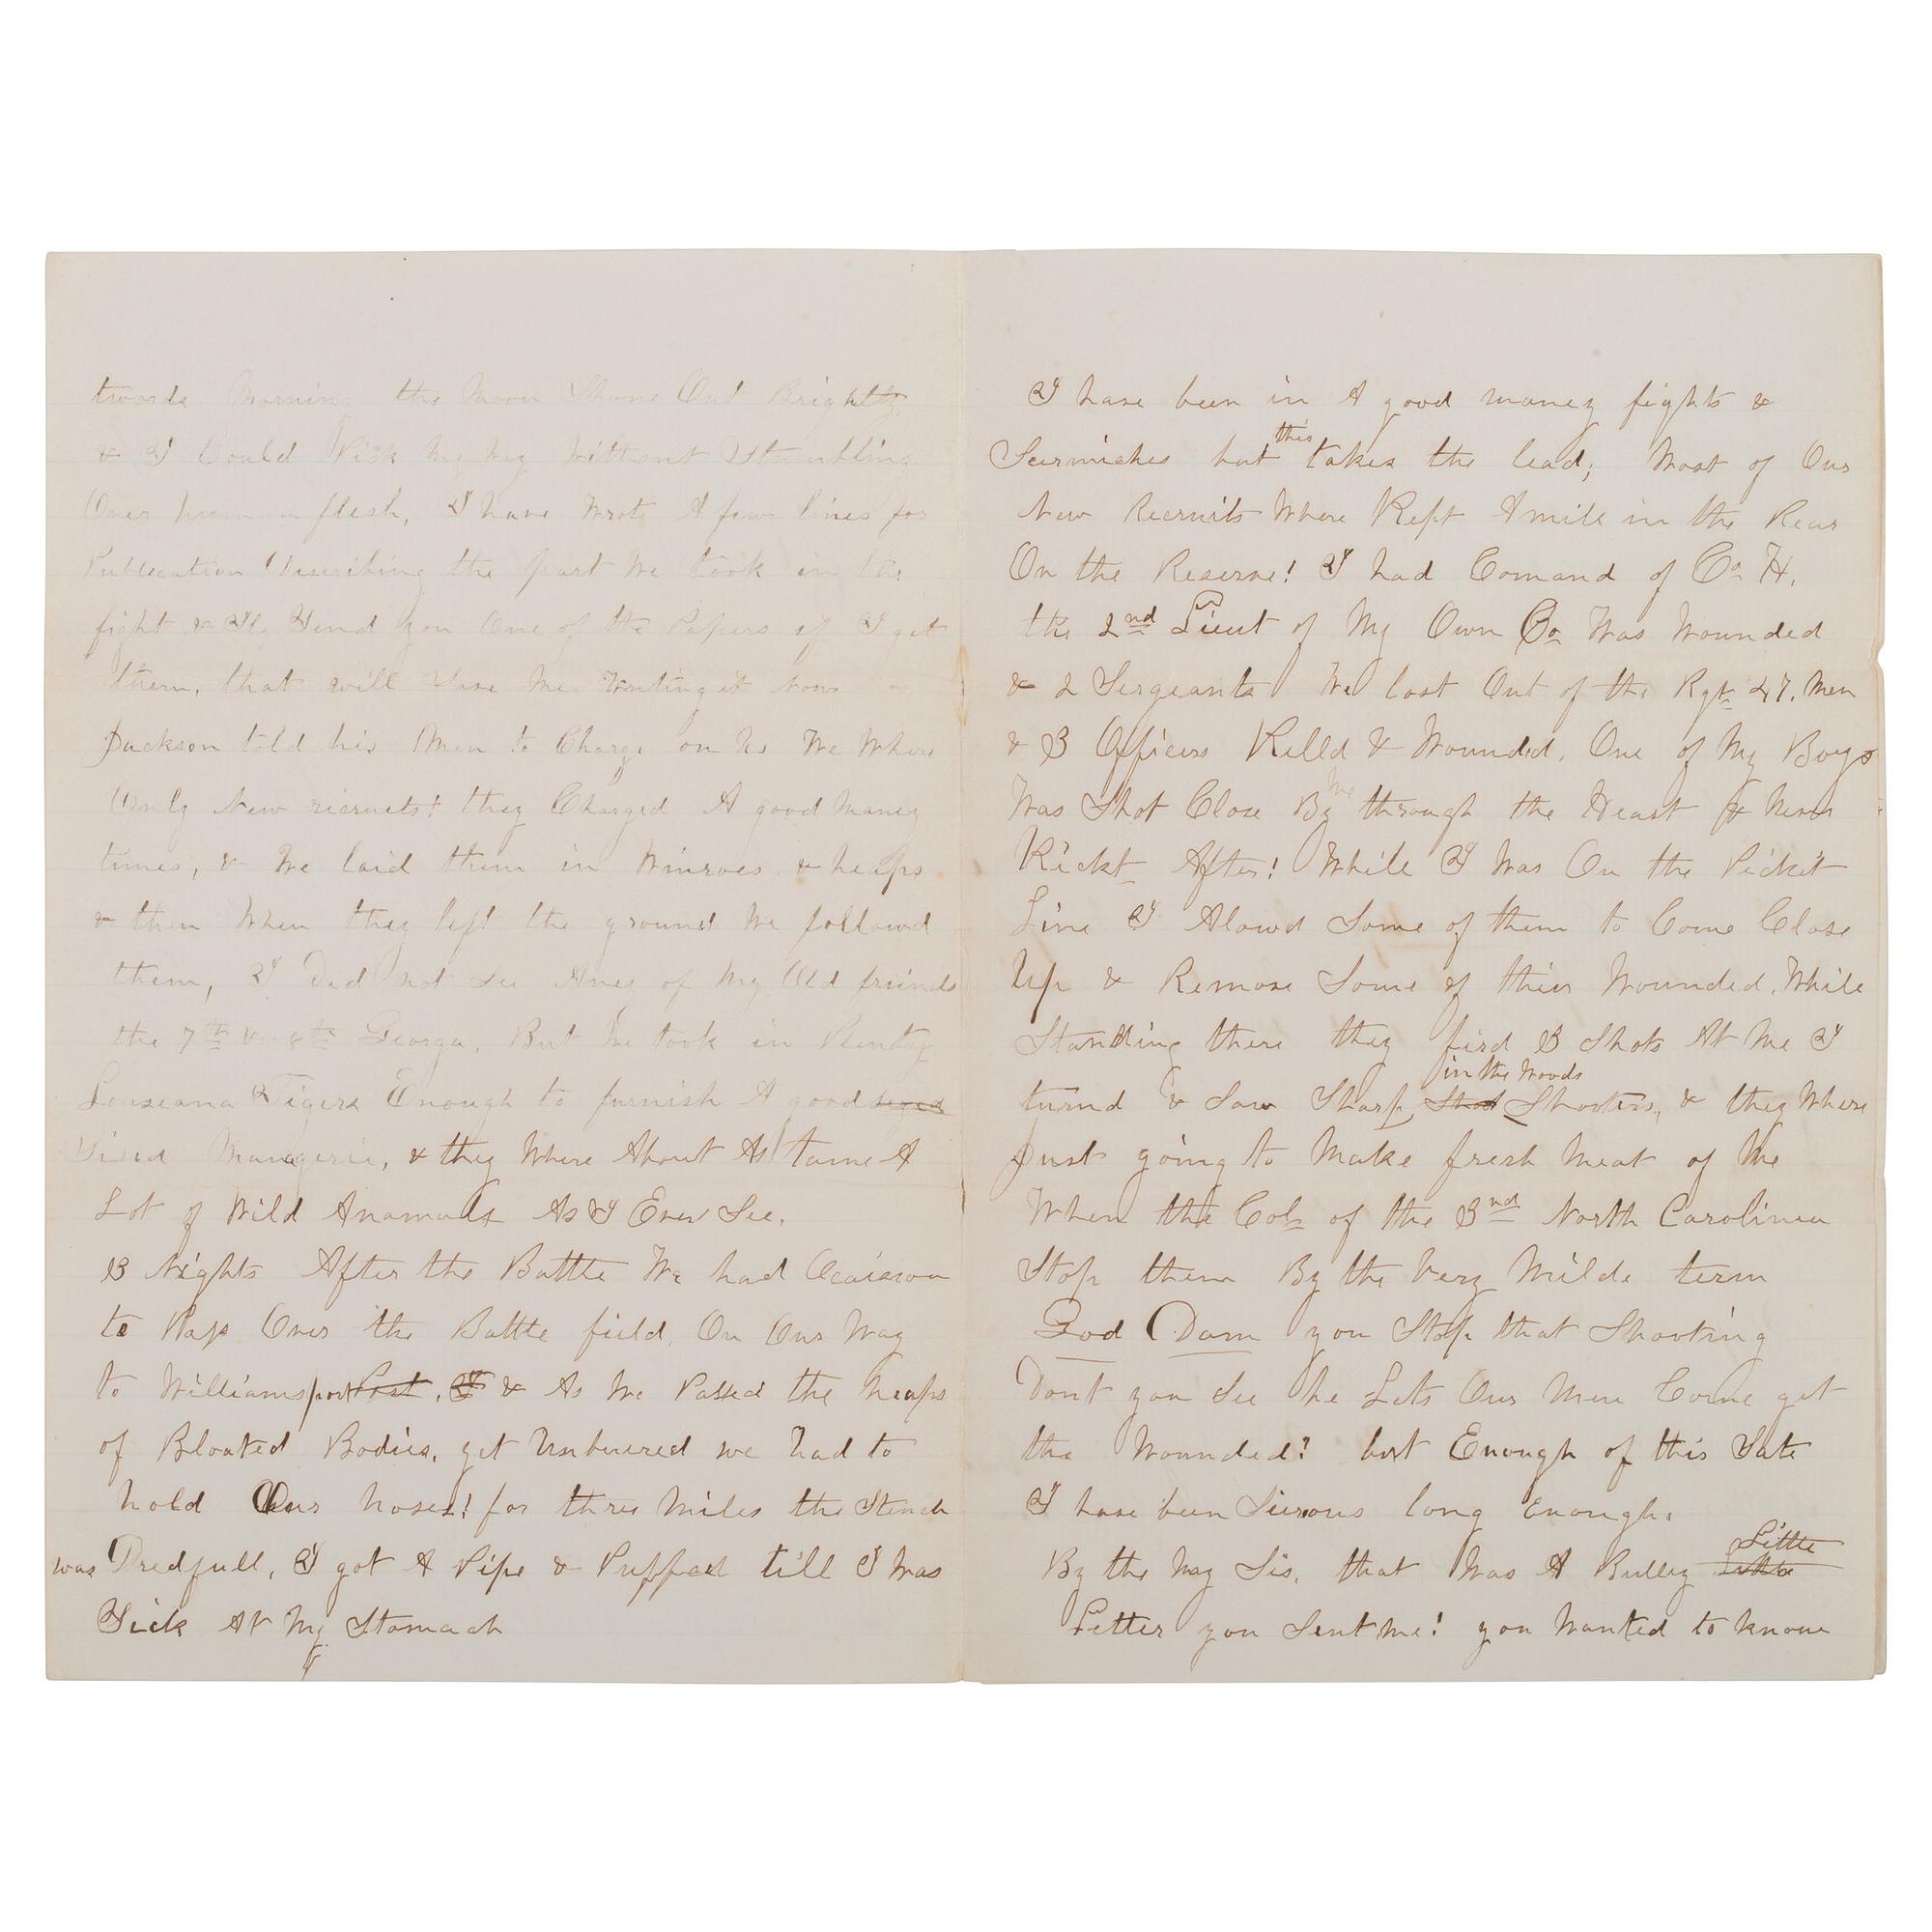 twords Morning the Moon Shone Out Brightly
& I Could Pick My Way Without Stumbling
Over human flesh, I have Wrote A few lines for
Publication Describing the part We took in the
fight & Ile Send you One of the Papers if I get
them, that will Save Me Writing it Now
Jackson told his Men to Charge on Us We Where
Only New ricruits! they Charged A good Maney
times, & We laid them in Winroes & heaps
& then When they left the ground We followd
them, I Did not See Aney of My Old friends
the 7th & 8th Georga, But We took in Plenty
Louseana Tigers Enough to furnish A good sized
Sized Managerie, & they Where About As tame A
Lot of Wild Anamals As I Ever See.
3 Nights After the Battle We had Ocaison
to Pass Over the Battle field, On Our Way
to Williamsport Port, I & As We Passed the heaps
of Bloated Bodies, yet Unburied we had to
hold Our Noses! for three Miles the Stench
was Dredfull, I got A Pipe & Puffed till I Was
Sick At My Stomach
I have been in A good maney fights &
Scirmishes but this takes the lead; Most of Our
New Recruits Where Kept A mile in the Rear
On the Reserve! I had Comand of Co H,
the 2nd Lieut of My Own Co Was Wounded
& 2 Sergeants We lost Out of the Rgt 47, Men
& 3 Officers Killd & Wounded, One of My Boys
Was Shot Close By Me through the Heart & Never
Kickt After! While I Was On the Picket
Line I Alowd Some of them to Come Close
Up & Remove Some of their Wounded, While
Standing there they fird 3 Shots At Me I
turnd & Saw Sharp Shot Shooters, in the Woods & they Where
Just going to Make fresh Meat of Me
When the Col of the 3nd North Carolinea
Stop them By the Very Milde term
God Dam you Stop that Shooting
Dont you See he Lets Our Men Come get
the Wounded? but Enough of this Sate
I have been Sierous long Enough.
By the Way Sis, that Was A Bulley Little
Letter you Sent Me! you Wanted to know